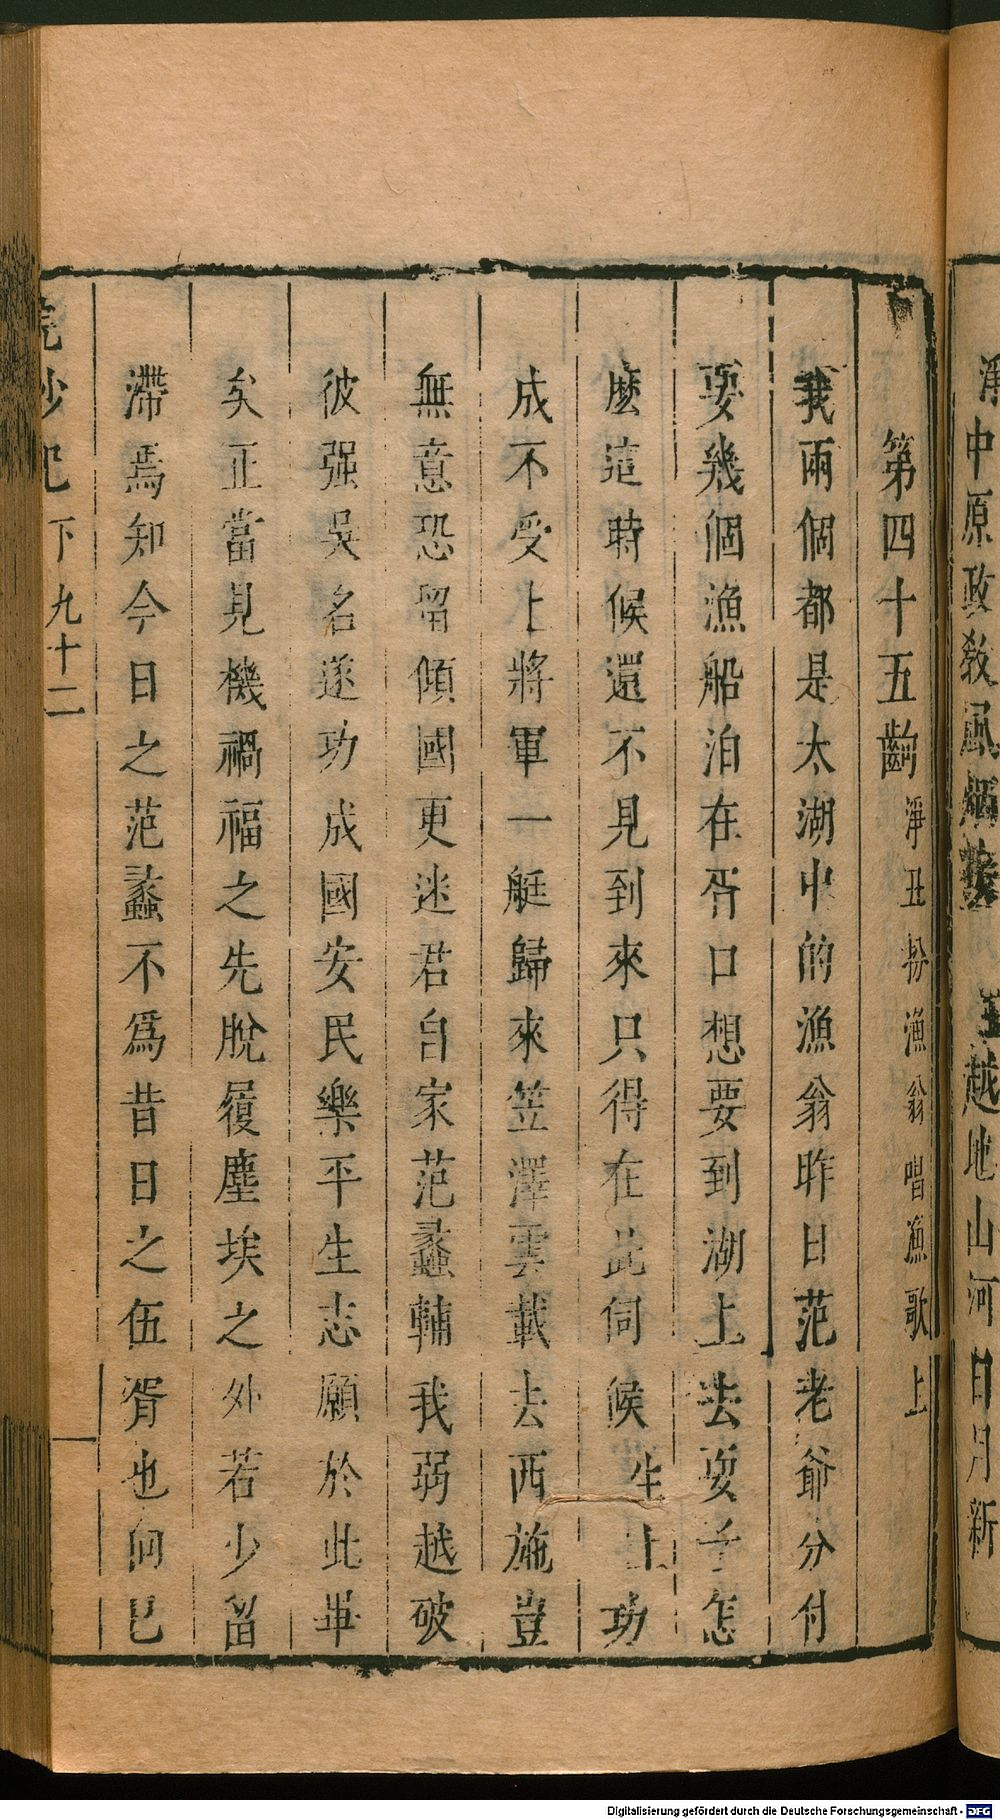 淨中原政教風
越地山河日月新
第四十五齣 淨丑扮漁翁唱漁歌上
我兩個都是太湖中的漁翁昨日范老爺分付
要幾個漁船泊在胥口想要到湖上去耍子怎
麽這時候還不見到來只得在此伺候 生上 功
成不受上將軍一艇歸來笠澤雲載去西施豈
無意恐留傾國更迷君自家范蠡輔我弱越破
彼强吳名遂功成國安民樂平生志願於此畢
矣正當見機禍福之先脫履塵埃之外若少留
滯焉知今日之范蠡不爲昔日之伍胥也何巳
浣紗記 下 九十二
Digitalisierung gefördert durch die Deutsche Forschungsgemeinschaft - DFG